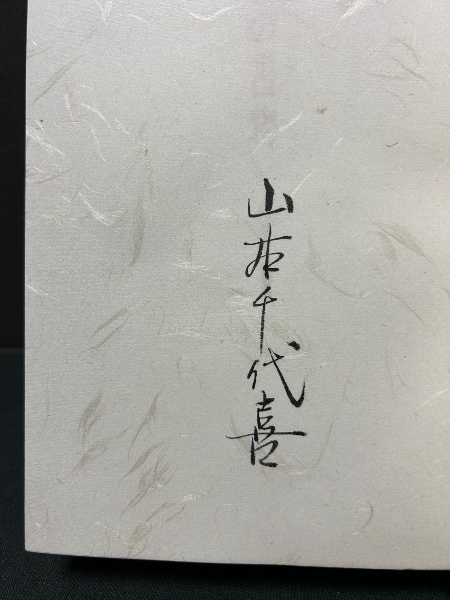 山本千代喜